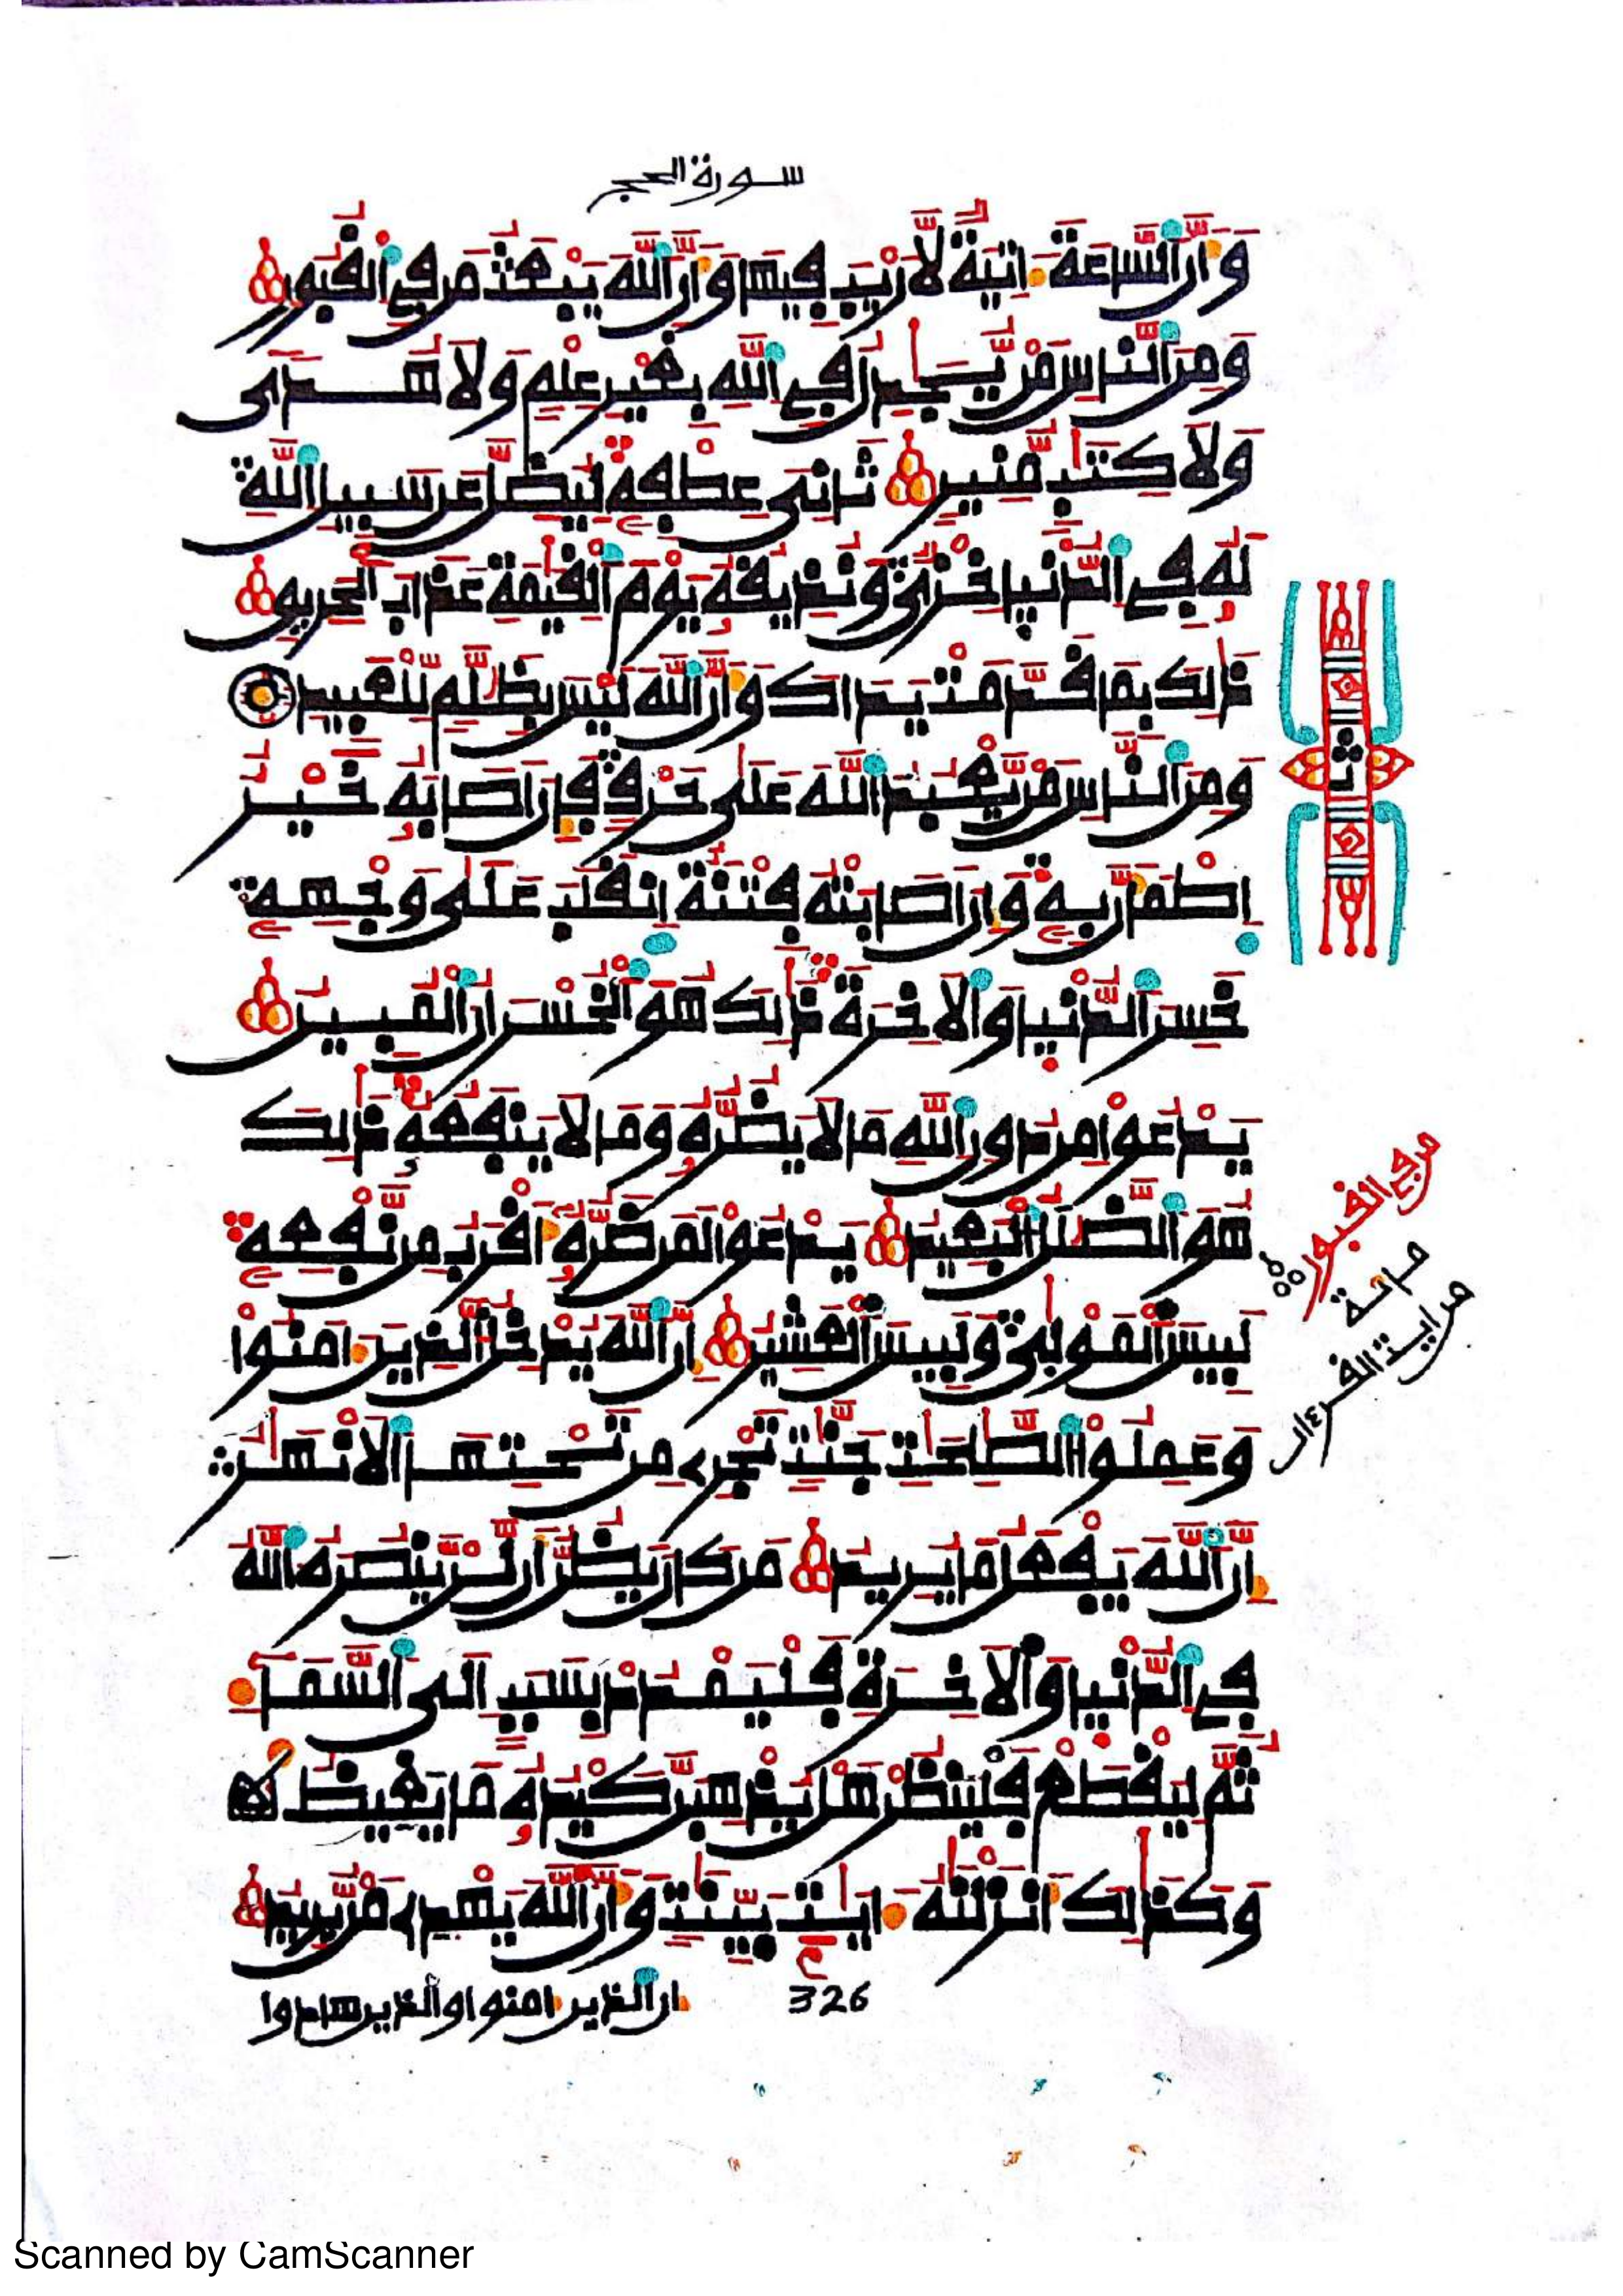 سورة الحج
وَأَنَّ ٱلسَّاعَةَ ءَاتِيَةٌ لَّا رَيْبَ فِيهَا وَأَنَّ ٱللَّهَ يَبْعَثُ مَن فِي ٱلْقُبُورِ
وَمِنَ ٱلنَّاسِ مَنْ يُّجَٰدِلُ فِي ٱللَّهِ بِغَيْرِ عِلْمٍ وَلَا هُدًى
وَلَا كِتَٰبٍ مُّنِيرٍ ثَانِيَ عِطْفِهِۦ لِيُضِلَّ عَن سَبِيلِ ٱللَّهِ
لَهُۥ فِي ٱلدُّنْيَا خِزْيٌ وَنُذِيقُهُۥ يَوْمَ ٱلْقِيَٰمَةِ عَذَابَ ٱلْحَرِيقِ
ذَٰلِكَ بِمَا قَدَّمَتْ يَدَاكَ وَأَنَّ ٱللَّهَ لَيْسَ بِظَلَّٰمٍ لِّلْعَبِيدِ
وَمِنَ ٱلنَّاسِ مَنْ يَّعْبُدُ ٱللَّهَ عَلَىٰ حَرْفٍ فَإِنْ أَصَابَهُۥ خَيْرٌ
ٱطْمَأَنَّ بِهِۦ وَإِنْ أَصَابَتْهُ فِتْنَةٌ ٱنقَلَبَ عَلَىٰ وَجْهِهِۦ
خَسِرَ ٱلدُّنْيَا وَٱلْأَخِرَةَ ذَٰلِكَ هُوَ ٱلْخُسْرَانُ ٱلْمُبِينُ
يَدْعُوا مِن دُونِ ٱللَّهِ مَا لَا يَضُرُّهُۥ وَمَا لَا يَنفَعُهُۥ ذَٰلِكَ
هُوَ ٱلضَّلَٰلُ ٱلْبَعِيدُ يَدْعُوا لَمَن ضَرُّهُۥ أَقْرَبُ مِن نَّفْعِهِۦ
لَبِيسَ ٱلْمَوْلَىٰ وَلَبِيسَ ٱلْعَشِيرُ إِنَّ ٱللَّهَ يُدْخِلُ ٱلَّذِينَ ءَامَنُوا
وَعَمِلُوا ٱلصَّٰلِحَٰتِ جَنَّٰتٍ تَجْرِي مِن تَحْتِهَا ٱلْأَنْهَٰرُ
إِنَّ ٱللَّهَ يَفْعَلُ مَا يُرِيدُ مَن كَانَ يَظُنُّ أَن لَّنْ يَّنصُرَهُ ٱللَّهُ
فِي ٱلدُّنْيَا وَٱلْأَخِرَةِ فَلْيَمْدُدْ بِسَبَبٍ إِلَى ٱلسَّمَآءِ
ثُمَّ لِيَقْطَعْ فَلْيَنظُرْ هَلْ يُذْهِبَنَّ كَيْدُهُۥ مَا يَغِيظُ
وَكَذَٰلِكَ أَنزَلْنَٰهُ ءَايَٰتٍ بَيِّنَٰتٍ وَأَنَّ ٱللَّهَ يَهْدِي مَنْ يُّرِيدُ
326
إن ٱلذين ءامنوا وٱلذين هادوا
ثمن
من في القبور